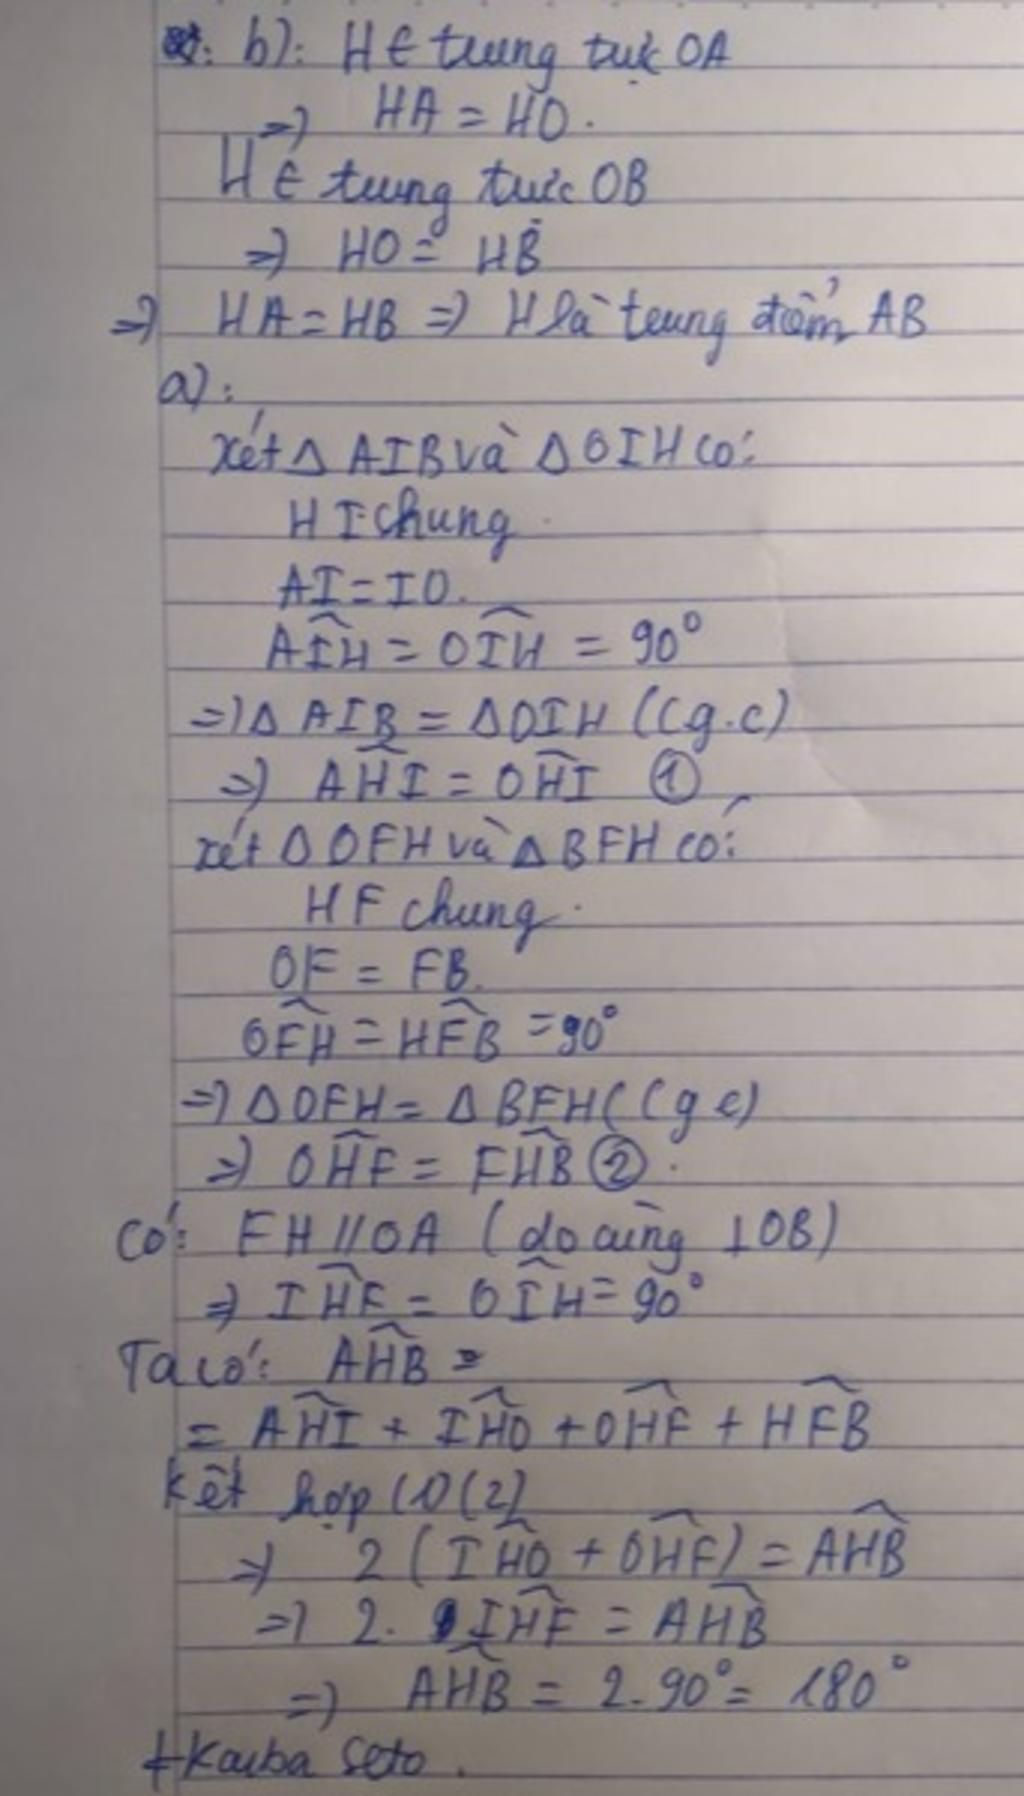 b): H ∈ trung trực OA
=) HA = HO.
H ∈ trung trực OB
=) HO = HB
=) HA = HB =) H là trung điểm AB
a):
xét Δ AIB và Δ OIH có:
HI chung
AI = IO.
AIH = OIH = 90°
=) Δ AIB = Δ OIH (cg.c)
=) AHI = OHI ①
xét Δ OFH và Δ BFH có:
HF chung.
OF = FB.
OFH = HFB = 90°
=) Δ OFH = Δ BFH (cgc)
=) OHF = FHB ② .
Có: FH // OA (do cùng ⊥ OB)
=) IHF = OIH = 90°
Ta có: AHB =
= AHI + IHO + OHF + HFB
Kết hợp (1) (2)
=) 2 (IHO + OHF) = AHB
=) 2. IHF = AHB
=) AHB = 2.90° = 180°
+Kaiba Seto.